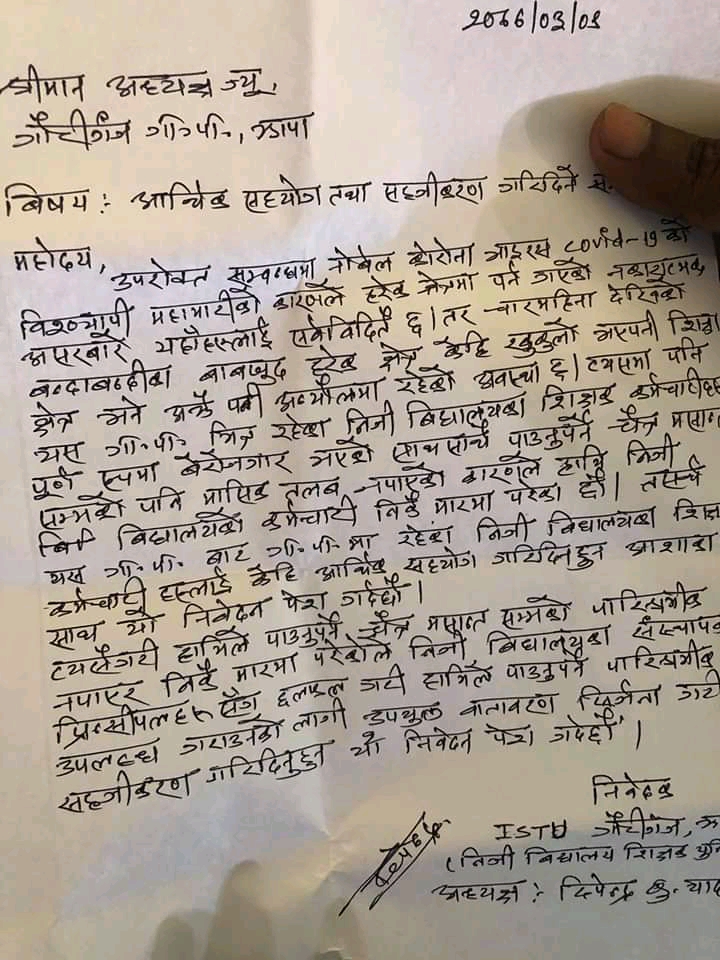 श्रीमान अध्यक्ष ज्यू,
गौरीगंज गा॰पा॰, झापा
बिषय: आर्थिक सहयोग तथा सहजीकरण गरिदिने
महोदय,
उपरोक्त सम्बन्धमा नोबेल कोरोना भाइरस COVID-19 को
विश्वव्यापी महामारीको कारणले हरेक क्षेत्रमा पर्न गएको नकारात्मक
असरबारे यहाँहरुलाई सर्वविदितै छ। तर चारमहिना देखिको
बन्दाबन्दीका बाबजुद हरेक क्षेत्र केहि खुकुलो भएपनी शिक्षा
क्षेत्र भने अझै पनी अन्यौलमा रहेको अवस्था छ। त्यसमा पनि
यस गा॰पा॰ भित्र रहेका निजी बिद्यालयका शिक्षक कर्मचारी
पूर्ण रुपमा बेरोजगार भएको साथसाथै पाउनुपर्ने चैत्र मसान्त
सम्मको पनि मासिक तलब नपाएको कारणले हामि निजी
बिद्यालयको कर्मचारी निकै मारमा परेका छौ। तसर्थ
यस गा॰पा॰ बाट गा॰पा॰मा रहेका निजी बिद्यालयका
कर्मचारी हरुलाई केहि आर्थिक सहयोग गरिदिनुहुन आशाका
साथ यो निवेदन पेश गर्दछौं।
त्यसैगरी हामिले पाउनुपर्ने चैत्र मसान्त सम्मको पारिश्रमीक
नपाएर निकै मारमा परेकोले निजी बिद्यालयका संस्थापक
प्रिन्सीपलहरु सँग छलफल गरी हामिले पाउनुपर्ने पारिश्रमीक
उपलब्ध गराउनको लागी उपयुक्त वातावरण सिर्जना गरी
सहजीकरण गरिदिनुहुन यो निवेदन पेश गर्दछौं।
निवेदक
ISTU गौरीगंज,
(निजी बिद्यालय शिक्षक
अध्यक्ष: दिपेन्द्र कु.